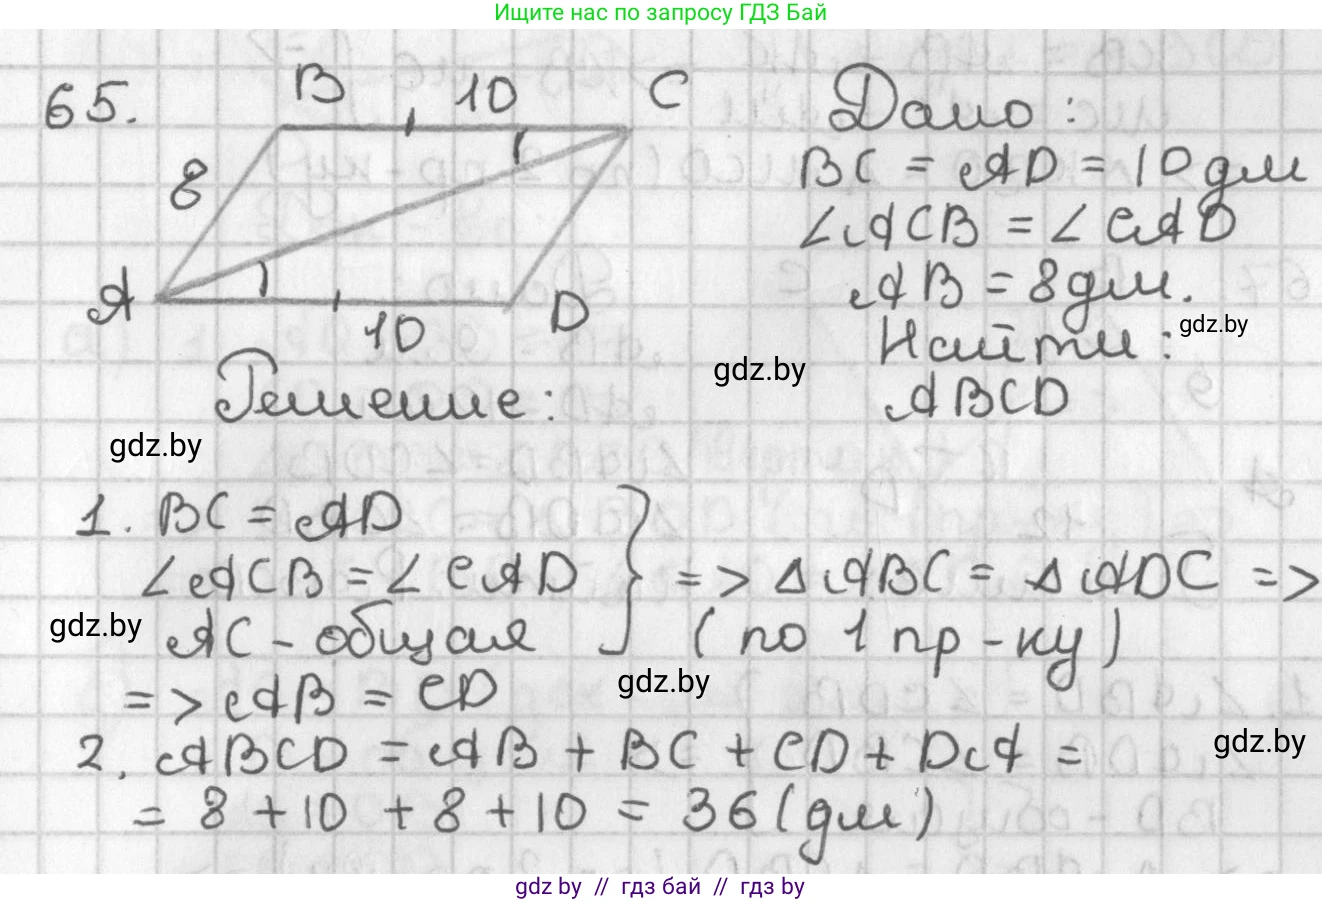 Ищите нас по запросу ГДЗ Бай
65.
B 10 C
8
A 10 D
Дано:
BC = AD = 10 дм
∠ACB = ∠CAD
AB = 8 дм.
Найти:
ABCD
gdz.by
gdz.by
Решение:
gdz.by
1. BC = AD
∠ACB = ∠CAD } => ΔABC = ΔADC =>
gdz.by
AC - общая (по 1 пр-ку)
=> AB = CD
gdz.by
2. ABCD = AB + BC + CD + DA =
gdz.by
= 8 + 10 + 8 + 10 = 36 (дм)
gdz.by // гдз бай // gdz.by